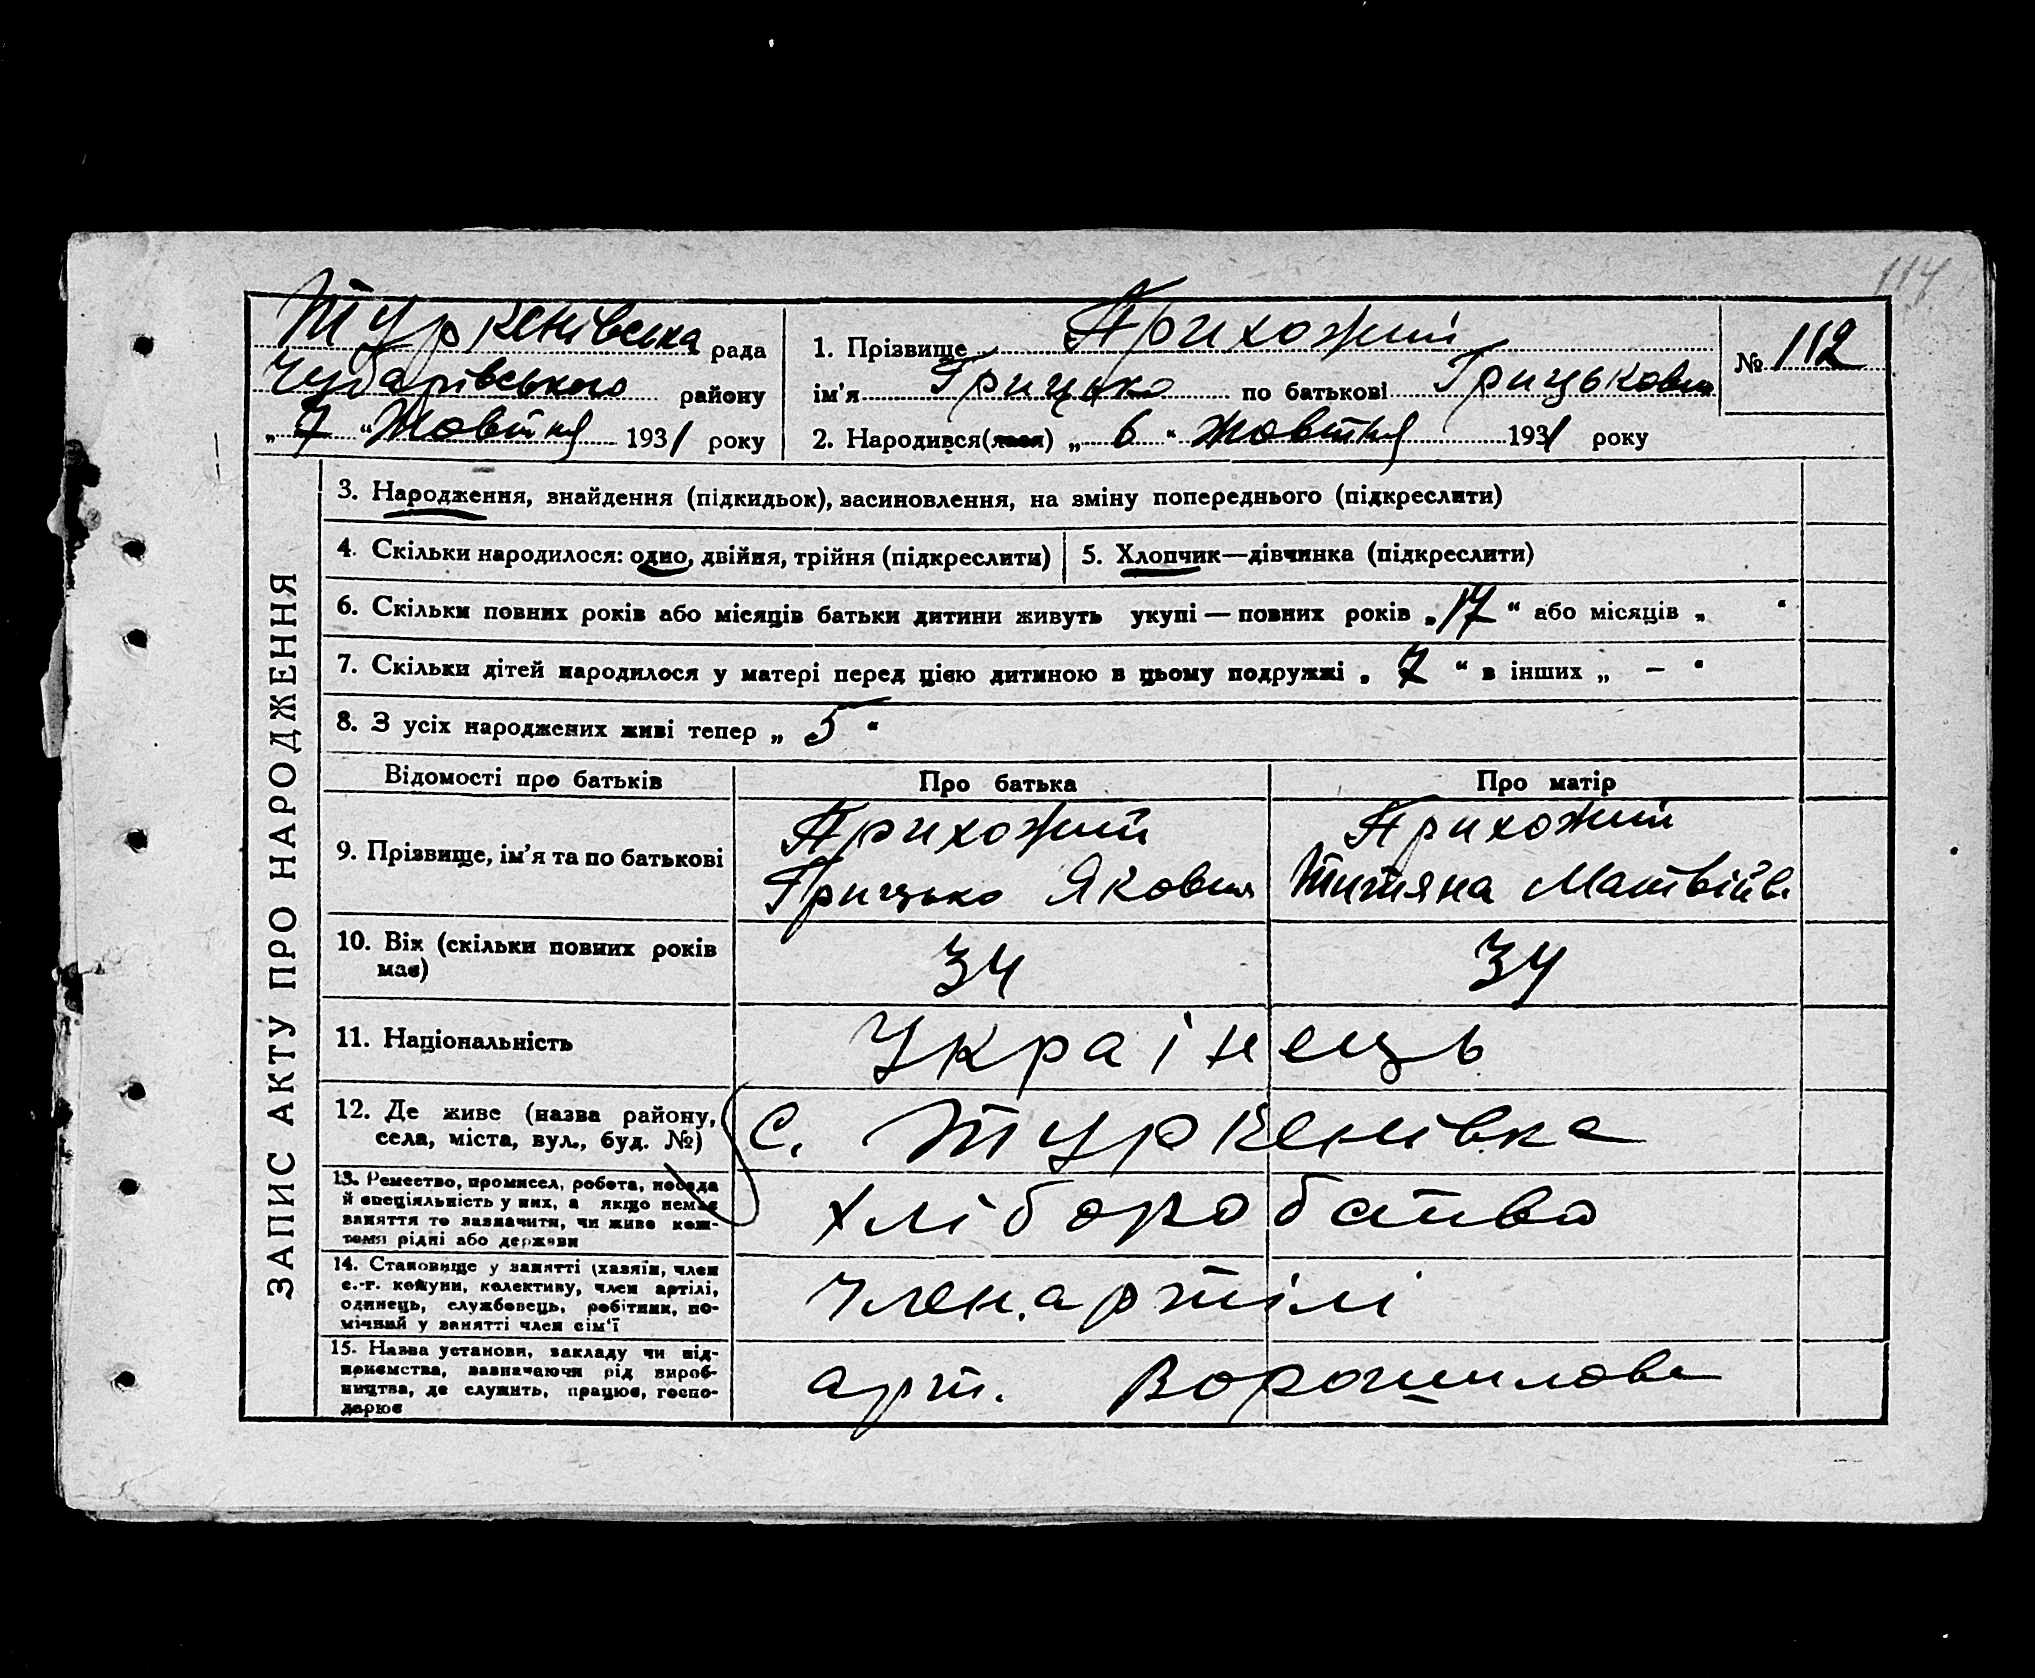 114
Туркенівська рада
Чубарівського району
„ 7 “ Жовтня 1931 року
1. Прізвище Прихожий
ім’я Грицько по батькові Грицькови
2. Народився(лася) „ 6 “ Жовтня 1931 року
№ 112
ЗАПИС АКТУ ПРО НАРОДЖЕННЯ
3. Народження, знайдення (підкидьок), васиновлення, на зміну попереднього (підкреслити)
4. Скільки народилося: одно, двійня, трійня (підкреслити)
5. Хлопчик—дівчинка (підкреслити)
6. Скільки повних років або місяців батьки дитини живуть укупі — повних років „ 17 “ або місяців „ “
7. Скільки дітей народилося у матері перед цією дитиною в цьому подружжі „ 7 “ в інших „ — “
8. З усіх народжених живі тепер „ 5 “
Відомості про батьків Про батька Про матір
9. Прізвище, ім’я та по батькові
Прихожий
Грицько Якович
Прихожий
Титяна Матвійв
10. Вік (скільки повних років
має)
34 34
11. Національність Українець
12. Де живе (назва району,
села, міста, вул., буд. №)
с. Туркенівка
13. Ремество, промисел, робота, посада
й спеціяльність у них, а якщо немає
заняття то зазначити, чи живе кош-
тами рідні або держави
хліборобатво
14. Становище у занятті (хазяїн, член
с.-г. комуни, колективу, член артілі,
одинець, службовець, робітник, по-
мічний у занятті член сім’ї
Член артілі
15. Назва установи, закладу чи під-
приємства, зазначаючи рід вироб-
ництва, де служить, працює, госпо-
дарює
арт. Ворошилова